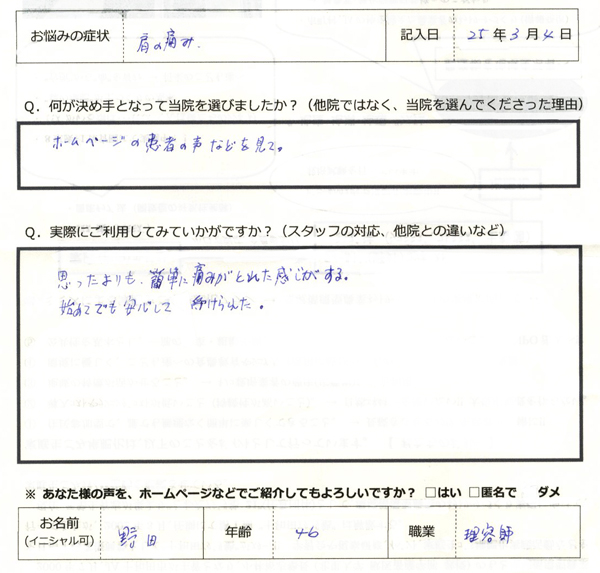 お悩みの症状 肩の痛み. 記入日 25年3月4日
Q. 何が決め手となって当院を選びましたか?(他院ではなく、当院を選んでくださった理由)
ホームページの患者の声などを見て。
Q. 実際にご利用してみていかがですか?(スタッフの対応、他院との違いなど)
思ったよりも、簡単に痛みがとれた感じがする。
始めてでも安心して 受けられた。
※ あなた様の声を、ホームページなどでご紹介してもよろしいですか? □はい □匿名で ダメ
お名前 野田 年齢 46 職業 理容師
(イニシャル可)